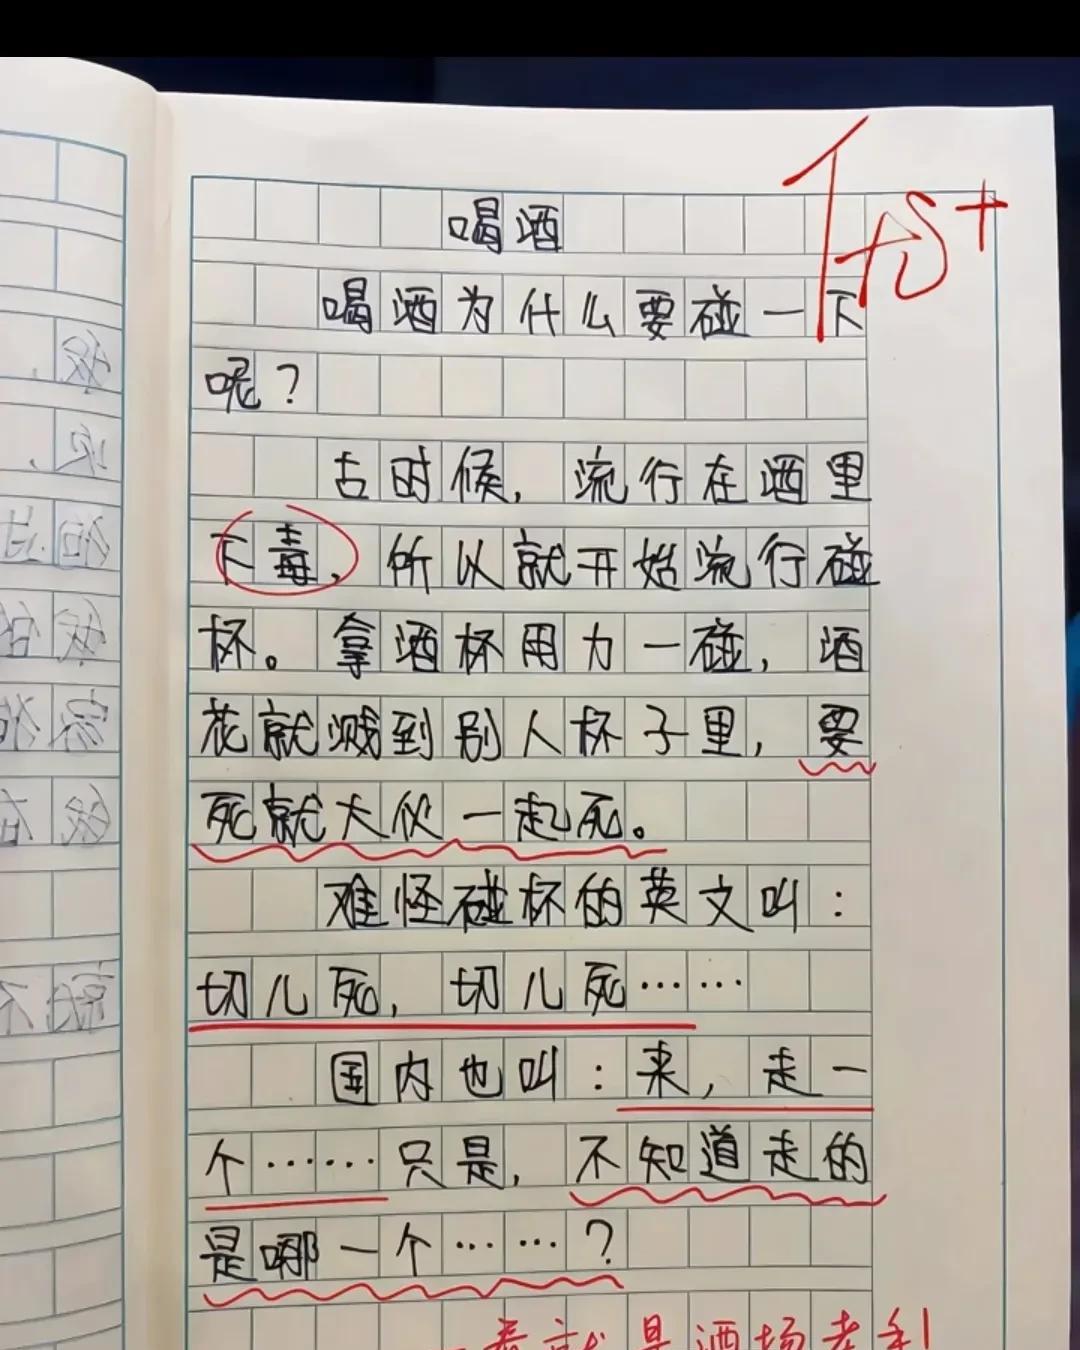 喝酒
喝酒为什么要碰一下
呢？
古时候，流行在酒里
下毒，所以就开始流行碰
杯。拿酒杯用力一碰，酒
花就溅到别人杯子里，要
死就大伙一起死。
难怪碰杯的英文叫：
切儿死，切儿死……
国内也叫：来，走一
个……只是，不知道走的
是哪一个……？
一看就是酒场老手